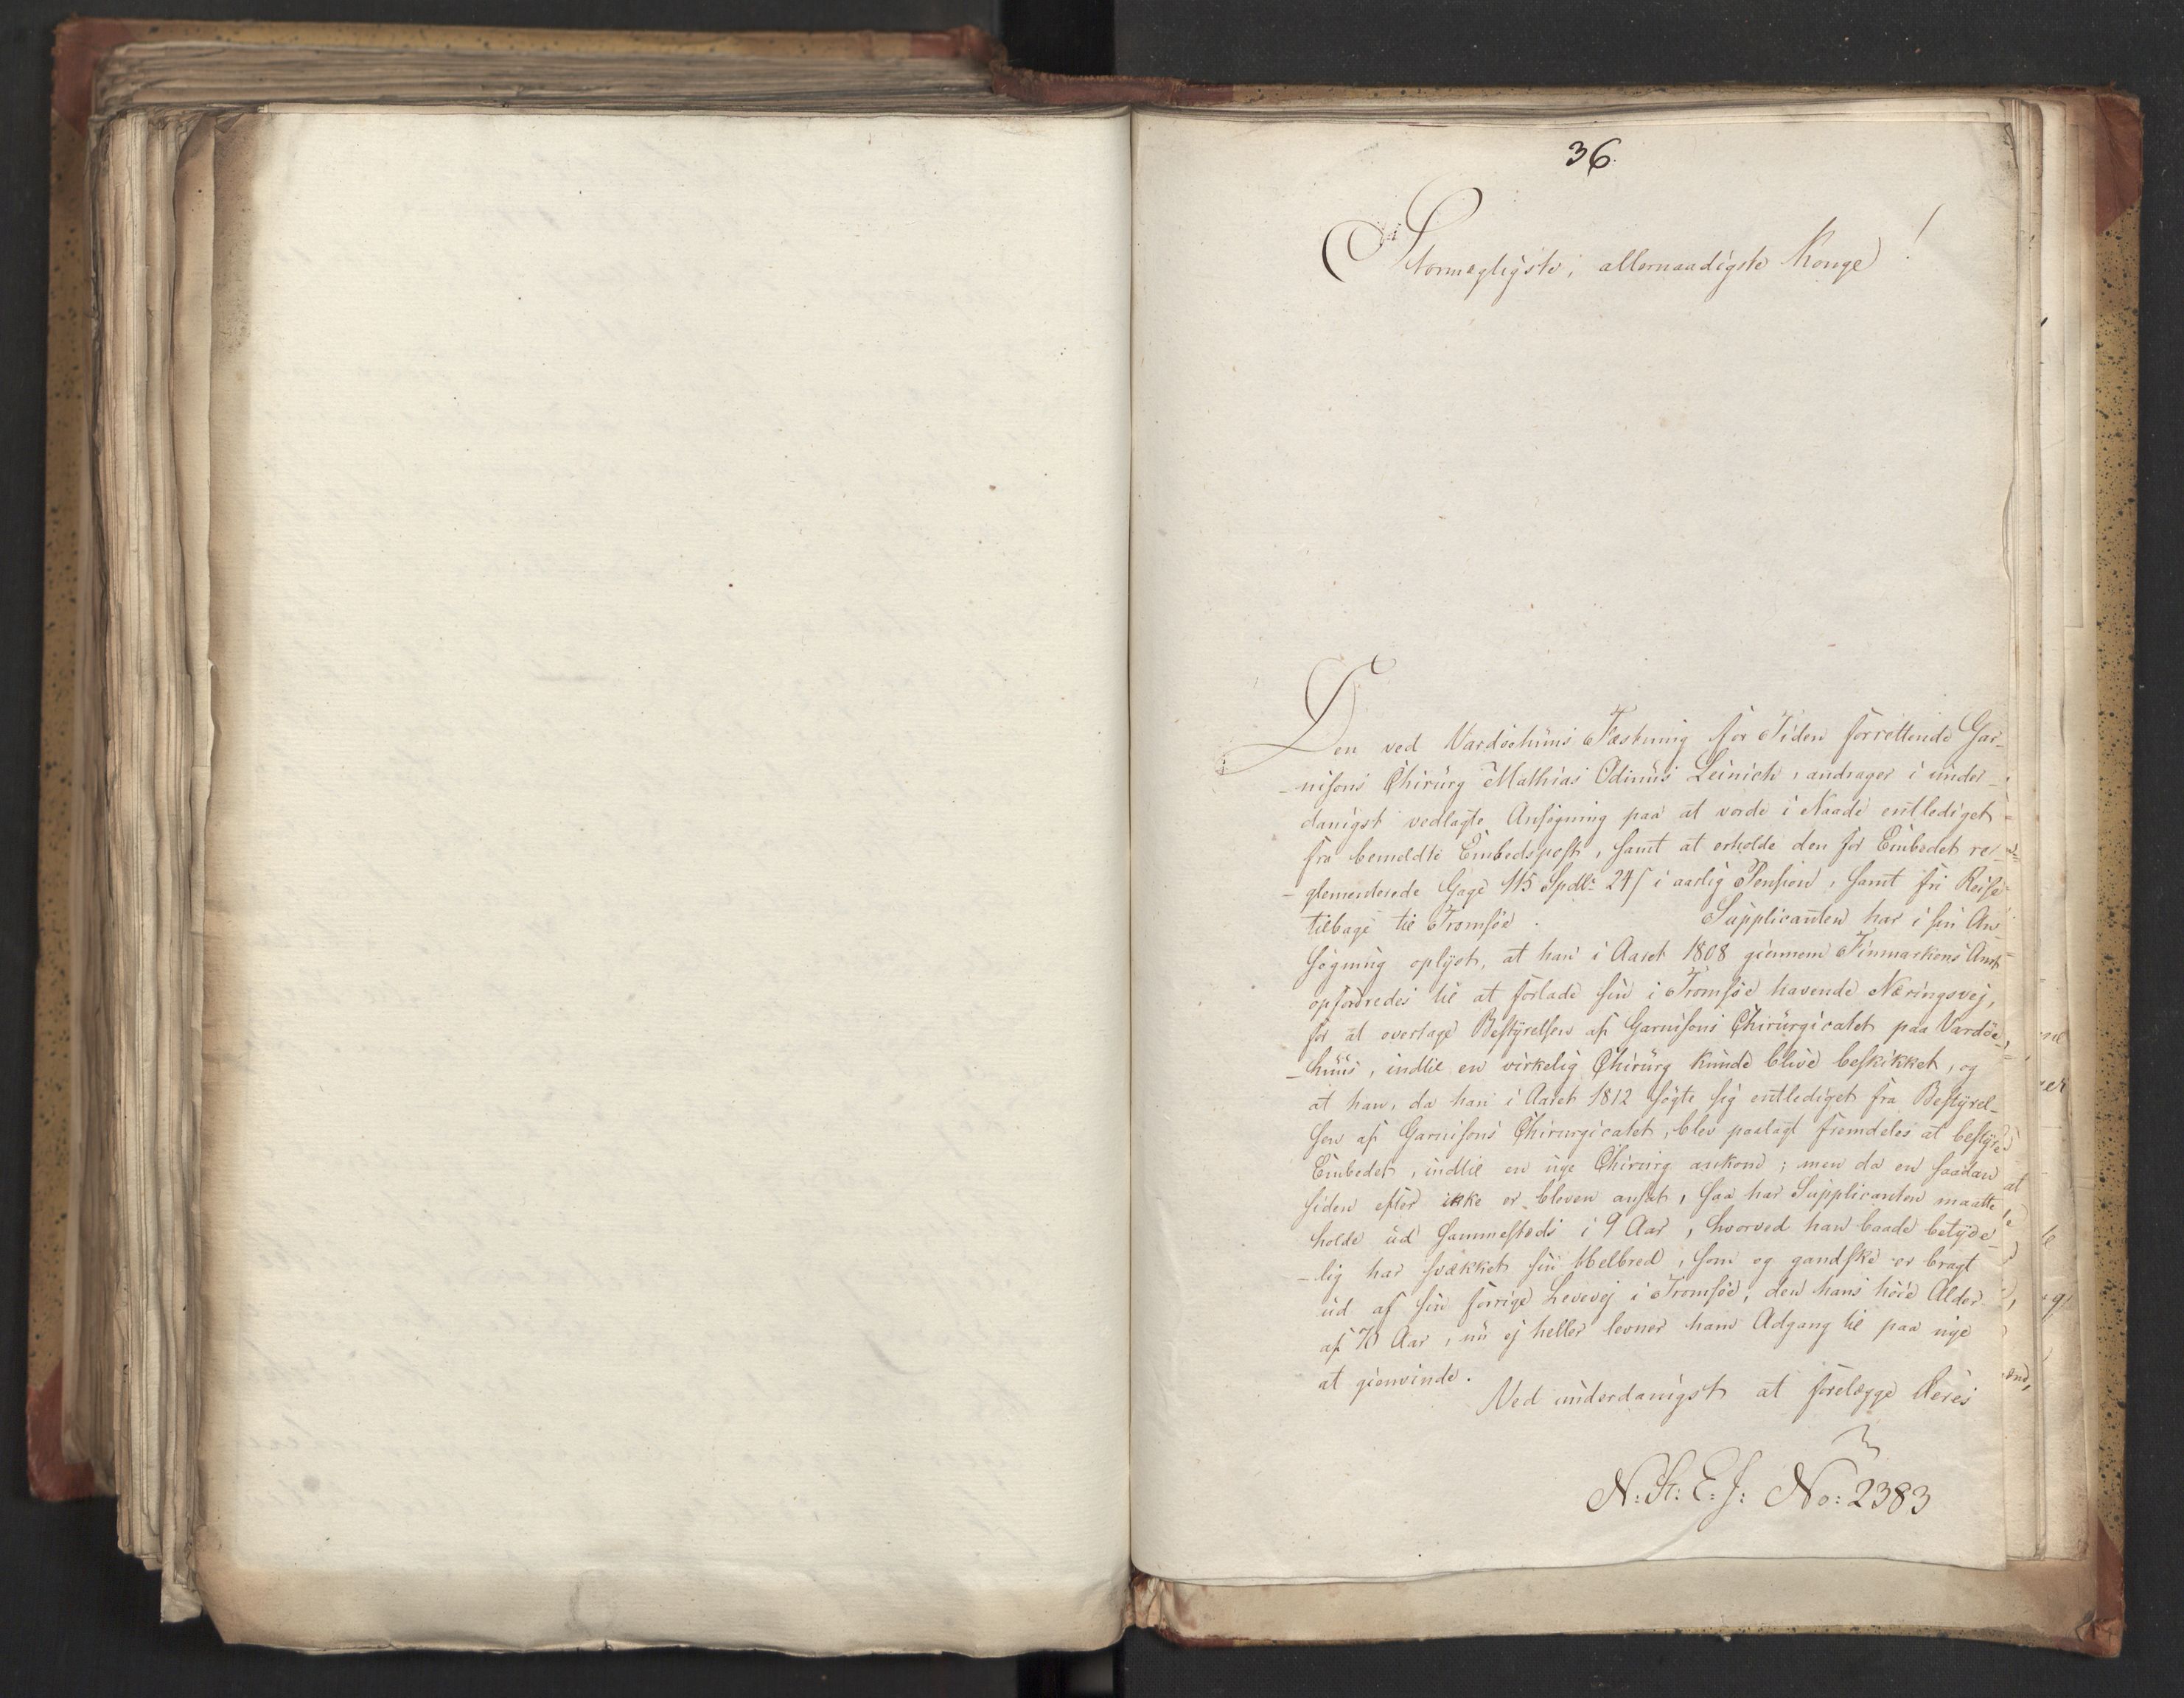 36.
Stormægtigste, allernaadigste Konge!
Den ved Vardøehuus Fæstning for Tiden forrettende Gar-
-nisons Chirurg Mathias Odinus Leinich, andrager i under-
danigst vedlagte Ansøgning paa at vorde i Naade entlediget
fra bemeldte Embedspost, samt at erholde den for Embedet re-
-glementerede Gage 115 Spdlr 24 s i aarlig Pension, samt fri Reise
tilbage til Tromsøe. Supplicanten har i sin An
søgning oplyst, at han i Aaret 1808 giennem Finmarkens Amt
opfodredes til at forlade sin i Tromsøe havende Næringsvej,
for at overtage Bestyrelsen af Garnisons Chirurgicatet paa Vardøe-
-huus, indtil en virkelig Chirurg kunde blive beskikket, og
at han, da han i Aaret 1812 søgte sig entlediget fra Bestyrel-
sen af Garnisons Chirurgicatet, blev paalagt fremdeles at bestyre
Embedet, indtil en nye Chirurg ankom; men da en saadan
siden efter ikke er bleven ansat, saa har Supplicanten maatte
holde ud sammesteds i 9 Aar, hvorved han baade betyde-
-lig har svækket sin Helbred, som og gandske er bragt
ud af sin forrige Levevej i Tromsøe, den hans høie Alder
af Aar, nu ej heller levner ham Adgang til paa nye
at gienvinde.
Ved underdanigst at forelægge Deres
N: K: E: J: No: 2383